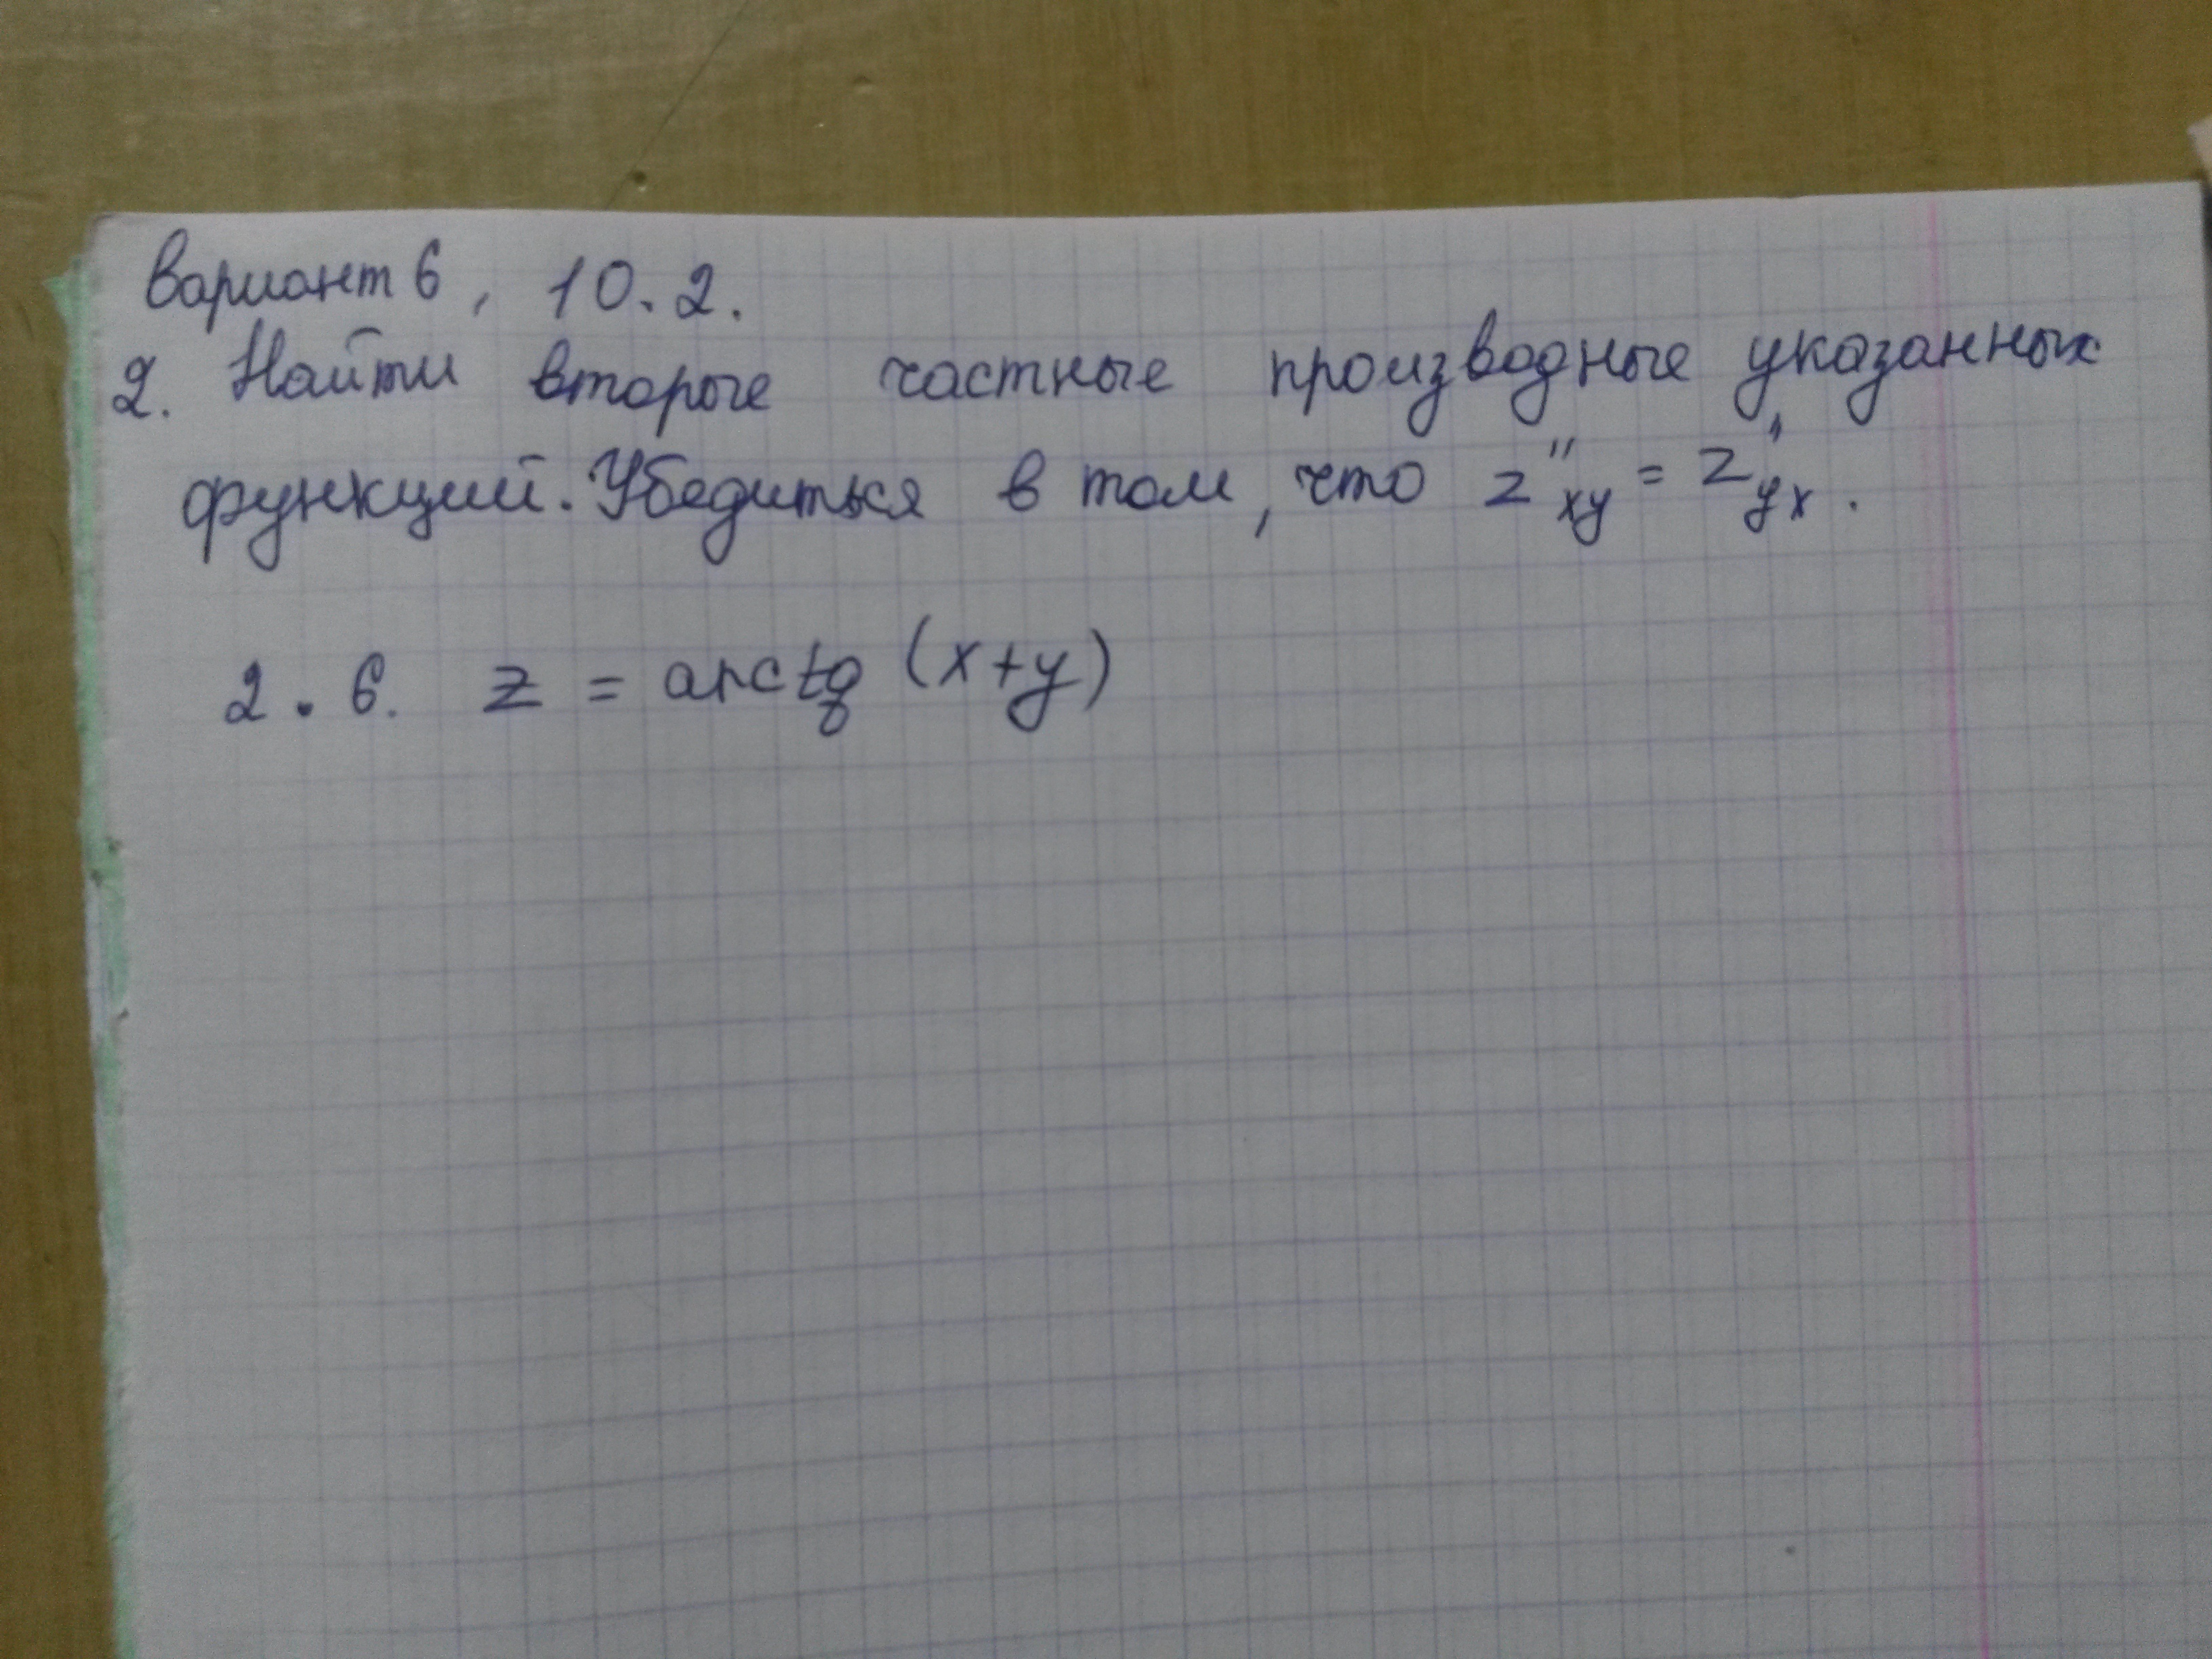 Вариант 6, 10.2.
2. Найти вторые частные производные указанных
функций. Убедиться в том, что z''xy = z''yx.
2.6. z = arctg (x+y)